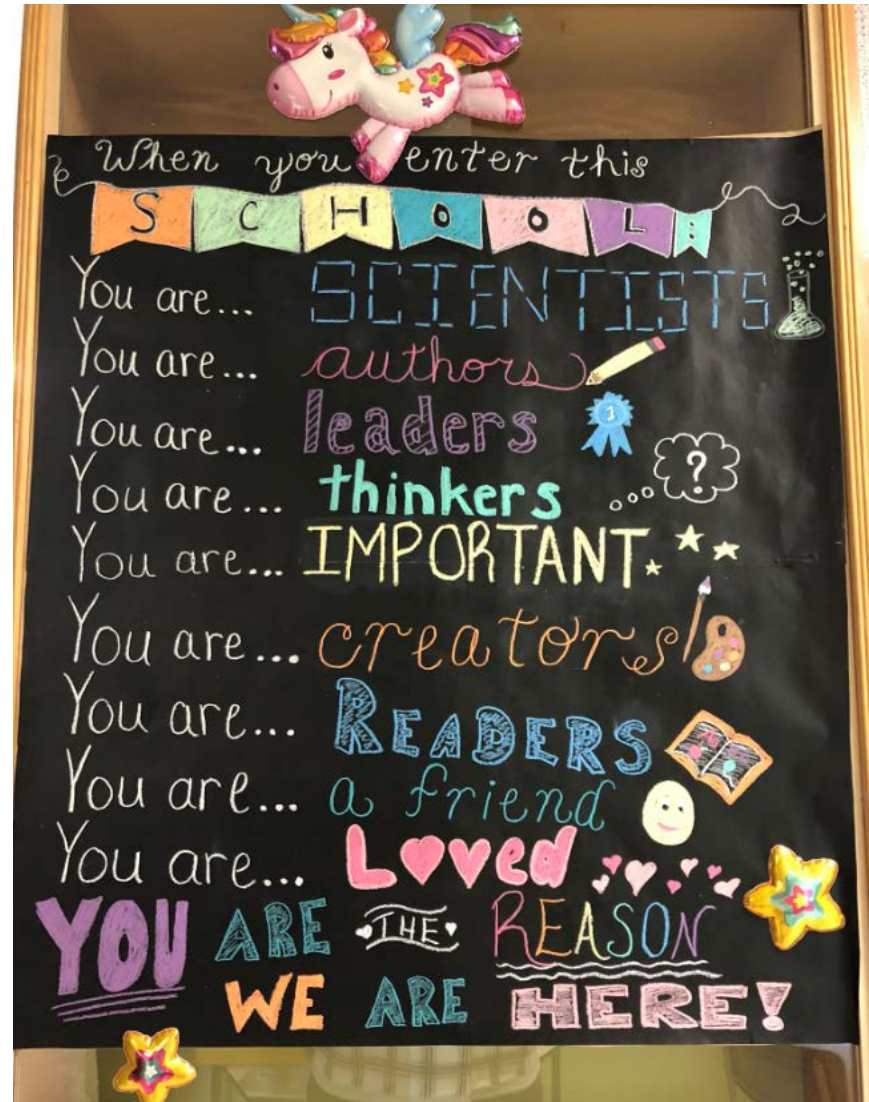 When you enter this
SCHOOL:
You are... SCIENTISTS
You are... authors
You are... leaders
1
You are... thinkers
?
You are... IMPORTANT
You are... creators
You are... READERS
You are... a friend
You are... Loved
YOU ARE THE REASON
WE ARE HERE!